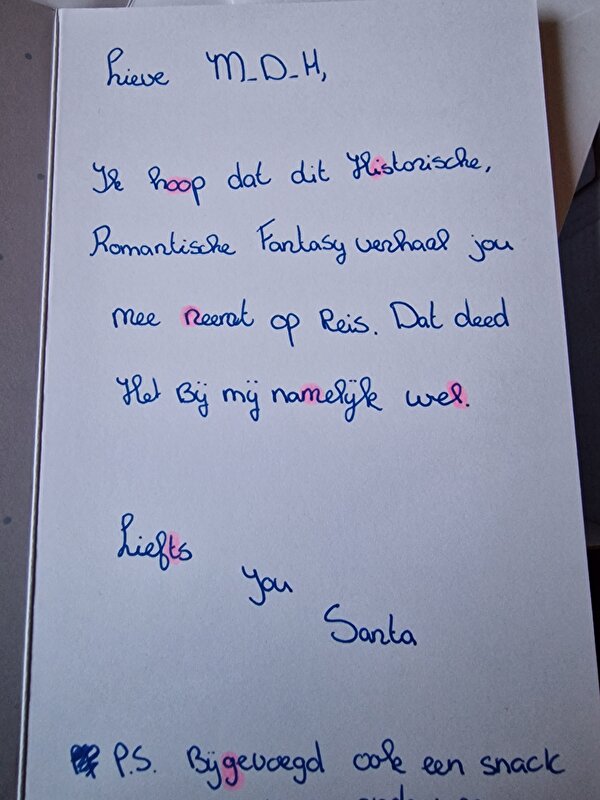 Lieve M-D-H,
Ik hoop dat dit Historische,
Romantische Fantasy verhaal jou
mee neemt op Reis. Dat deed
Het Bij mij namelijk wel.
Liefts
You
Santa
P.S. Bijgevoegd ook een snack